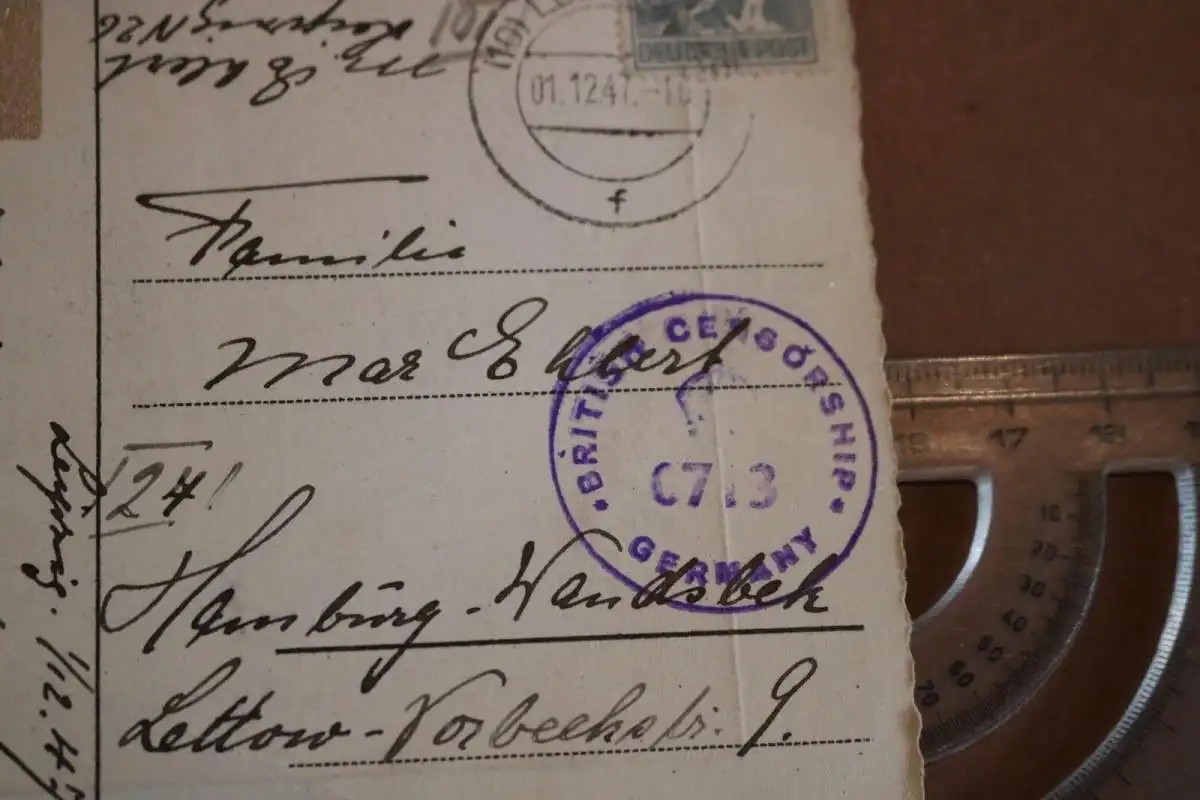 M. Ehlert
(10) LE
01.12.47.-1
f
DEUTSCHE POST
Familie
Max Ehlert
BRITISH CENSORSHIP
C7.3
GERMANY
(24)
Hamburg-Wandsbek
Lettow-Vorbeckstr. 9.
Leipzig. 1/12.47
17
18
10
20
30
40
50
60
70